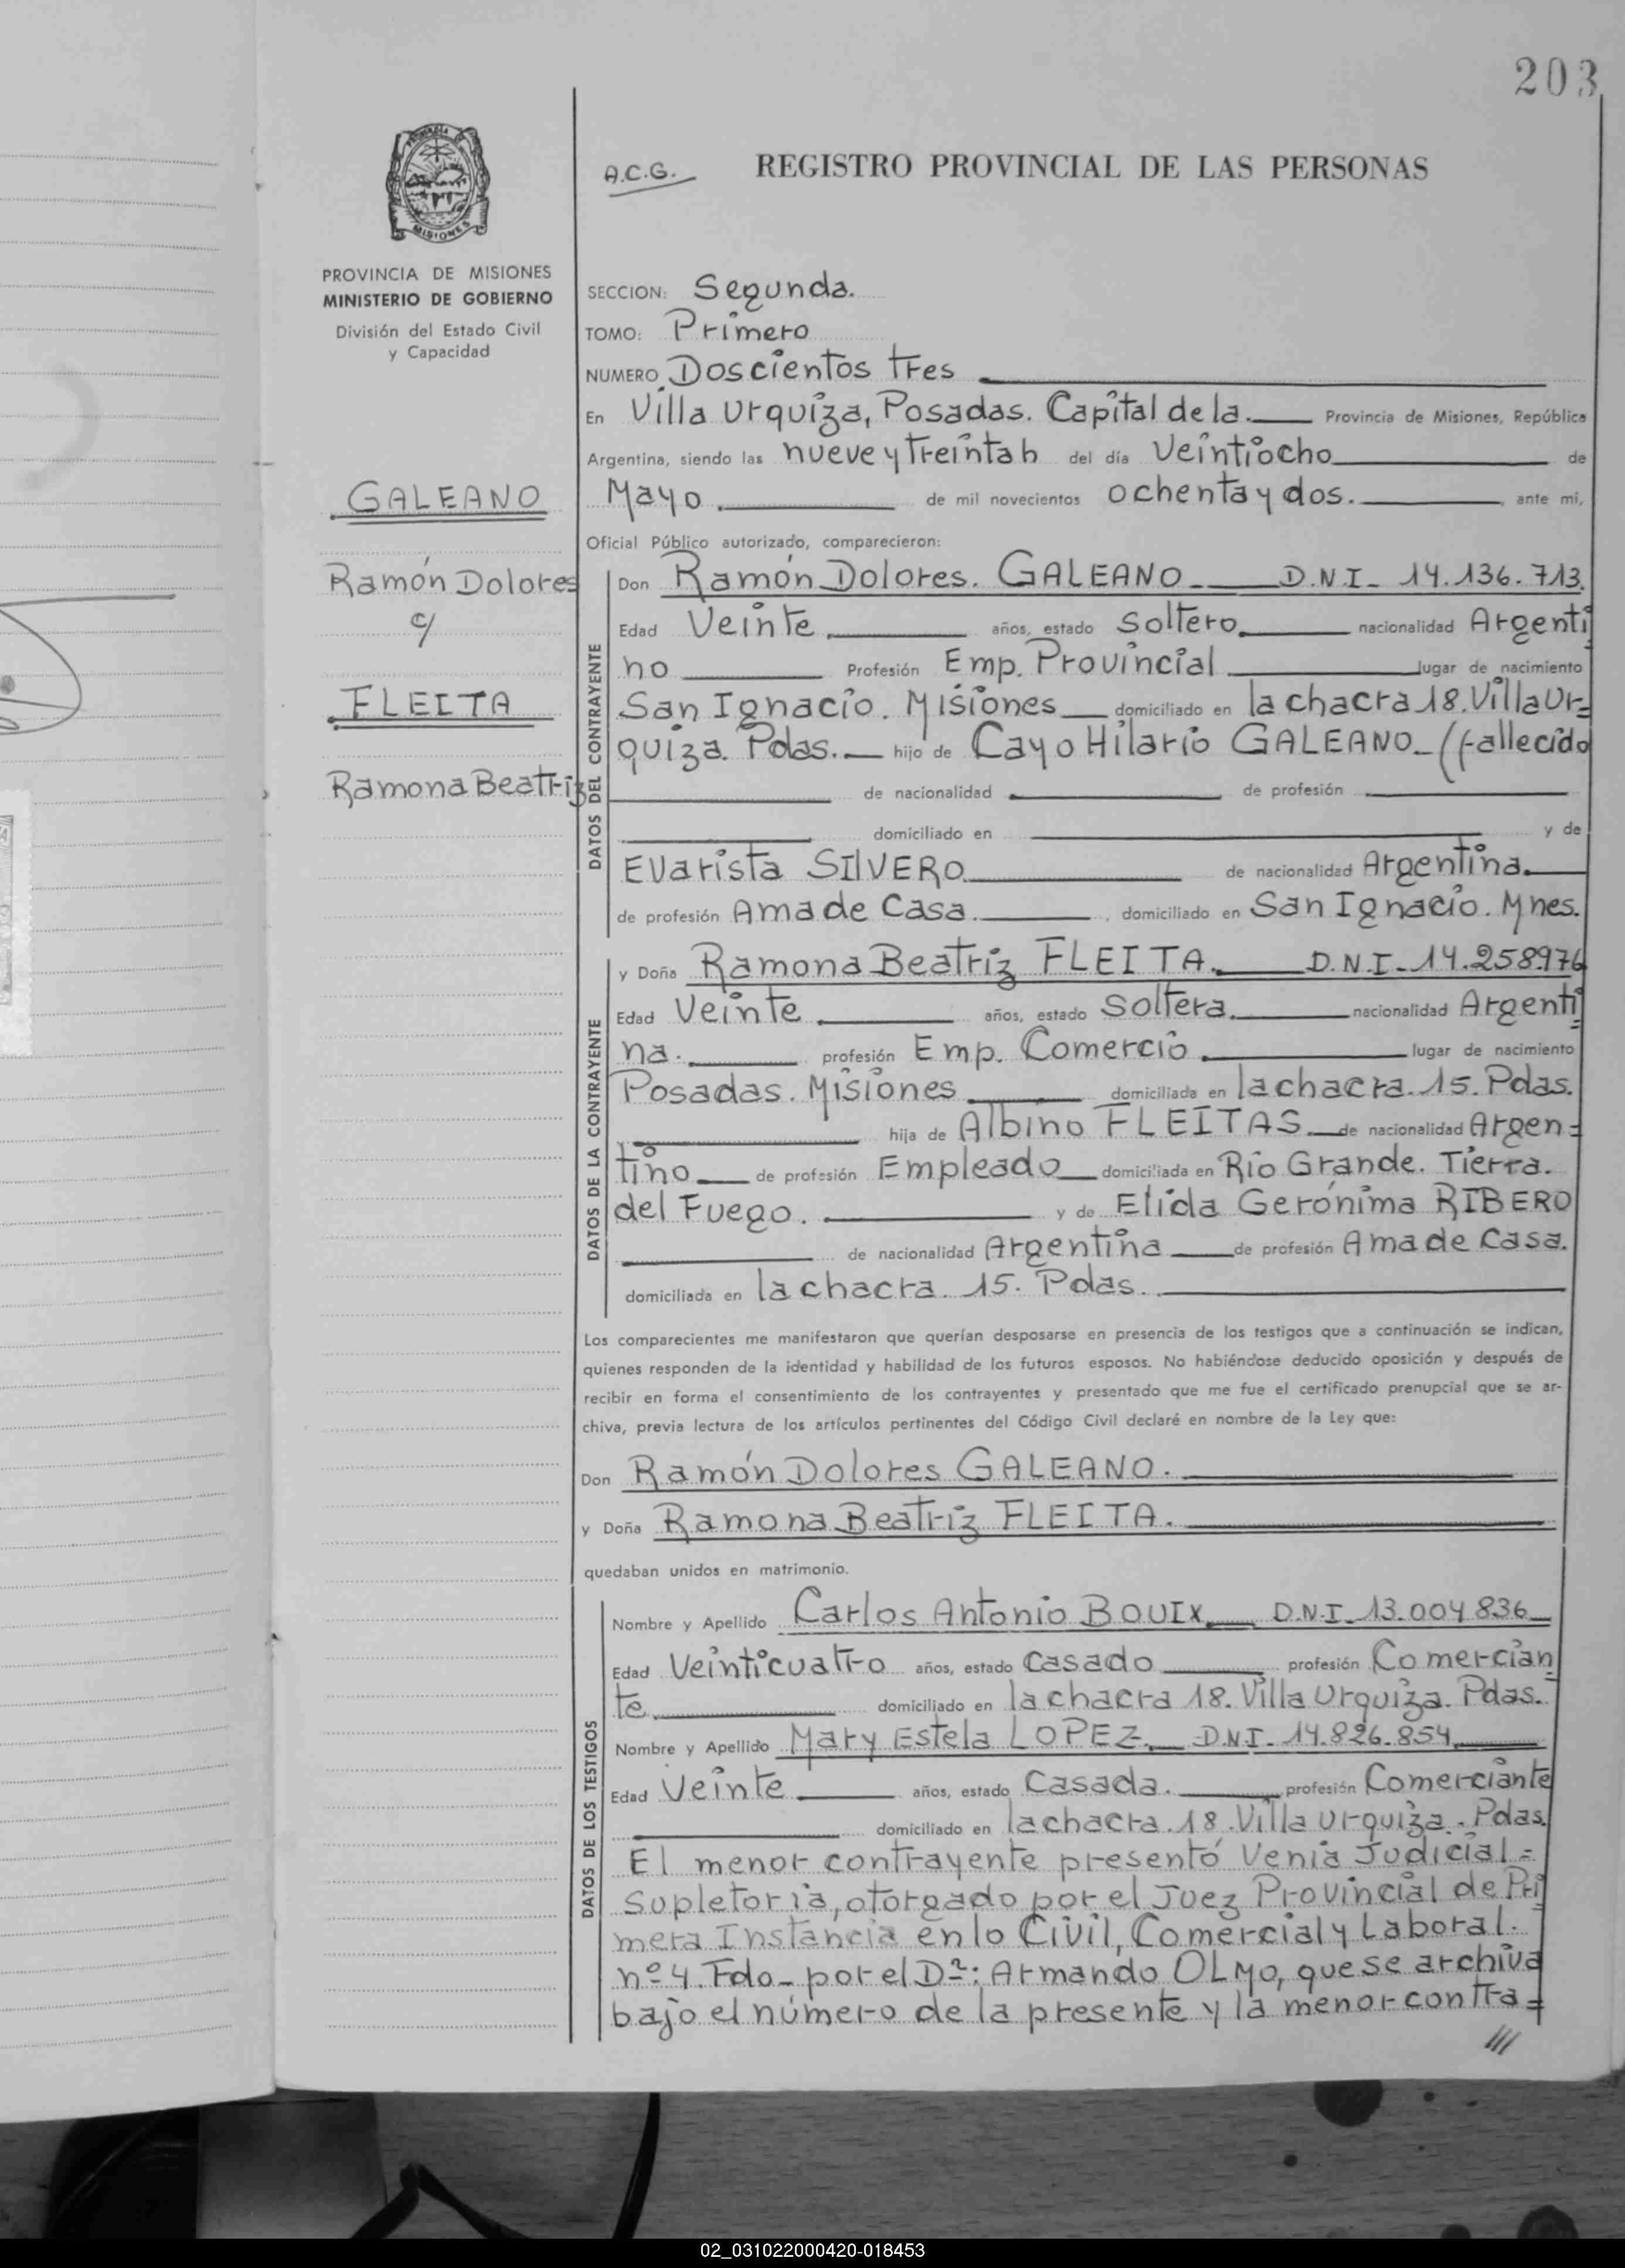 203
MISIONES
A.C.G.
REGISTRO PROVINCIAL DE LAS PERSONAS
PROVINCIA DE MISIONES
MINISTERIO DE GOBIERNO
División del Estado Civil
y Capacidad
SECCION: Segunda.
TOMO: Primero
NUMERO Doscientos tres
En Villa Urquiza, Posadas. Capital de la. Provincia de Misiones, República
Argentina, siendo las nueve y treinta h del día Veintiocho de
Mayo de mil novecientos ochenta y dos. ante mí,
Oficial Público autorizado, comparecieron:
GALEANO
Ramón Dolores
c/
FLEITA
Ramona Beatriz
DATOS DEL CONTRAYENTE
Don Ramón Dolores. GALEANO D.N.I- 14.136.713.
Edad Veinte años, estado Soltero. nacionalidad Argenti
no Profesión Emp. Provincial lugar de nacimiento
San Ignacio. Misiones domiciliado en la chacra 18. Villa Ur=
quiza. Pdas. hijo de Cayo Hilario GALEANO (fallecido
de nacionalidad de profesión
domiciliado en y de
Evarista SILVERO de nacionalidad Argentina.
de profesión Ama de Casa. , domiciliado en San Ignacio. Mnes.
DATOS DE LA CONTRAYENTE
y Doña Ramona Beatriz FLEITA. D.N.I- 14.258976
Edad Veinte años, estado Soltera. nacionalidad Argenti
na. profesión Emp. Comercio lugar de nacimiento
Posadas. Misiones domiciliada en la chacra. 15. Pdas.
hija de Albino FLEITAS de nacionalidad Argen=
tino de profesión Empleado domiciliada en Río Grande. Tierra.
del Fuego. y de Elida Gerónima RIBERO
de nacionalidad Argentina de profesión Ama de Casa.
domiciliada en la chacra. 15. Pdas.
Los comparecientes me manifestaron que querían desposarse en presencia de los testigos que a continuación se indican,
quienes responden de la identidad y habilidad de los futuros esposos. No habiéndose deducido oposición y después de
recibir en forma el consentimiento de los contrayentes y presentado que me fue el certificado prenupcial que se ar-
chiva, previa lectura de los artículos pertinentes del Código Civil declaré en nombre de la Ley que:
Don Ramón Dolores GALEANO.
y Doña Ramona Beatriz FLEITA.
quedaban unidos en matrimonio.
DATOS DE LOS TESTIGOS
Nombre y Apellido Carlos Antonio BOUIX D.N.I. 13.004836
Edad Veinticuatro años, estado Casado profesión Comercian
te domiciliado en la chacra 18. Villa Urquiza. Pdas.
Nombre y Apellido Mary Estela LOPEZ. D.N.I- 14.826.854
Edad Veinte años, estado Casada. profesión Comerciante
domiciliado en la chacra. 18. Villa Urquiza. Pdas.
El menor contrayente presentó Venia Judicial =
Supletoria, otorgado por el Juez Provincial de Pri
mera Instancia en lo Civil, Comercial y Laboral.
nº 4. Fdo- por el Dr: Armando OLMO, que se archiva
bajo el número de la presente y la menor contra=
///
02_031022000420-018453